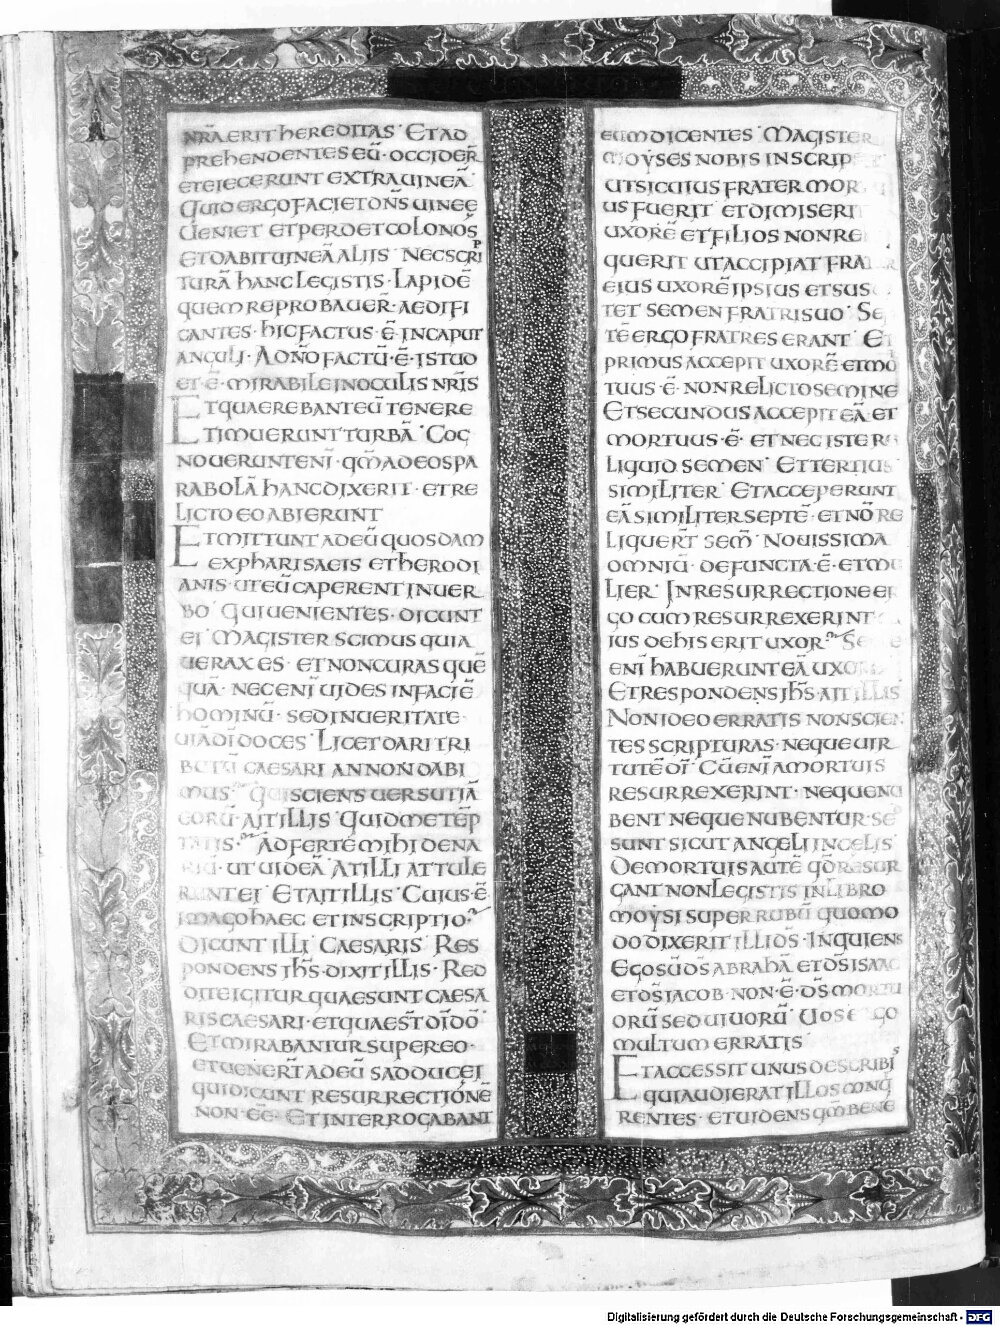 NR̄A ERIT HEREDITAS· ET AD
PREHENDENTES EŪ· OCCIDER̄
ET EIECERUNT EXTRA UINEĀ·
QUID ERGO FACIET DN̄S UINEE
UENIET ET PERDET COLONOS
ET DABIT UINEĀ ALIIS· NEC SCRIP
TURĀ HANC LEGISTIS· LAPIDĒ
QUEM REPROBAUER̄· AEDIFI
CANTES· HIC FACTUS· Ē· IN CAPUT
ANGULI· A DN̄O FACTŪ· Ē· ISTUD
ET· Ē· MIRABILE IN OCULIS NR̄IS
ET QUAEREBANT EŪ TENERE
ET TIMUERUNT TURBĀ· COG
NOUERUNT ENĪ· QM̄ AD EOS PA
RABOLĀ HANC DIXERIT· ET RE
LICTO EO ABIERUNT
ET MITTUNT AD EŪ QUOSDAM
EX PHARISAEIS ET HERODI
ANIS· UT EŪ CAPERENT IN UER
BO· QUI UENIENTES· DICUNT
EI· MAGISTER SCIMUS QUIA
UERAX ES· ET NON CURAS QUĒ
QUĀ· NEC ENĪ UIDES IN FACIĒ
HOMINŪ· SED IN UERITATE·
UIĀ DĪ DOCES· LICET DARI TRI
BUTŪ CAESARI AN NON DABI
MUS· QUI SCIENS UERSUTIĀ
EORŪ· AIT ILLIS· QUID ME TĒP
TATIS· ADFERTE MIHI DENA
RIŪ· UT UIDEĀ· AT ILLI ATTULE
RUNT EI· ET AIT ILLIS· CUIUS· Ē·
IMAGO HAEC ET INSCRIPTIO·
DICUNT ILLI· CAESARIS· RES
PONDENS IHS̄· DIXIT ILLIS· RED
DITE IGITUR QUAE SUNT CAESA
RIS CAESARI· ET QUAE ST̄ DĪ DŌ·
ET MIRABANTUR SUPER EO·
ET UENER̄T AD EŪ SADDUCEI
QUI DICUNT RESURRECTIONĒ
NON· EĒ· ET INTERROGABANT
EUM DICENTES· MAGISTER
MOYSES NOBIS INSCRIP
UT SI CUIUS FRATER MOR
US FUERIT· ET DIMISERI
UXORĒ ET FILIOS NON RE
QUERIT UT ACCIPIAT FRA
EIUS UXORĒ IPSIUS ET SUS
TET SEMEN FRATRI SUO· SE
TĒ ERGO FRATRES ERANT· ET
PRIMUS ACCEPIT UXORĒ ET MO
TUUS· Ē· NON RELICTO SEMINE
ET SECUNDUS ACCEPIT EĀ· ET
MORTUUS· Ē· ET NEC ISTE RE
LIQUID SEMEN· ET TERTIUS
SIMILITER· ET ACCEPERUNT
EĀ SIMILITER SEPTĒ· ET NŌ RE
LIQUER̄T SEM̄· NOUISSIMA
OMNIŪ· DEFUNCTA· Ē· ET MU
LIER· IN RESURRECTIONE ER
GO CUM RESURREXERINT
IUS DE HIS ERIT UXOR·
ENĪ HABUERUNT EĀ UXO
ET RESPONDENS IHS̄· AIT ILLIS
NON IDEO ERRATIS NON SCIEN
TES SCRIPTURAS· NEQUE UIR
TUTĒ DĪ· CŪ ENĪ A MORTUIS
RESURREXERINT· NEQUE NU
BENT NEQUE NUBENTUR· SE
SUNT SICUT ANGELI IN CELIS·
DE MORTUIS AUTĒ QD̄ RESUR
GANT NON LEGISTIS IN LIBRO
MOYSI SUPER RUBŪ QUOMO
DO DIXERIT ILLI DS̄· INQUIENS
EGO SŪ DS̄ ABRAHĀ ET DS̄ ISAAC
ET DS̄ IACOB· NON· Ē· DS̄ MORTU
ORŪ SED UIUORŪ· UOS E GO
MULTUM ERRATIS
ET ACCESSIT UNUS DE SCRIBIS
QUI AUDIERAT ILLOS CONQ
RENTES· ET UIDENS QM̄ BENE
Digitalisierung gefördert durch die Deutsche Forschungsgemeinschaft - DFG